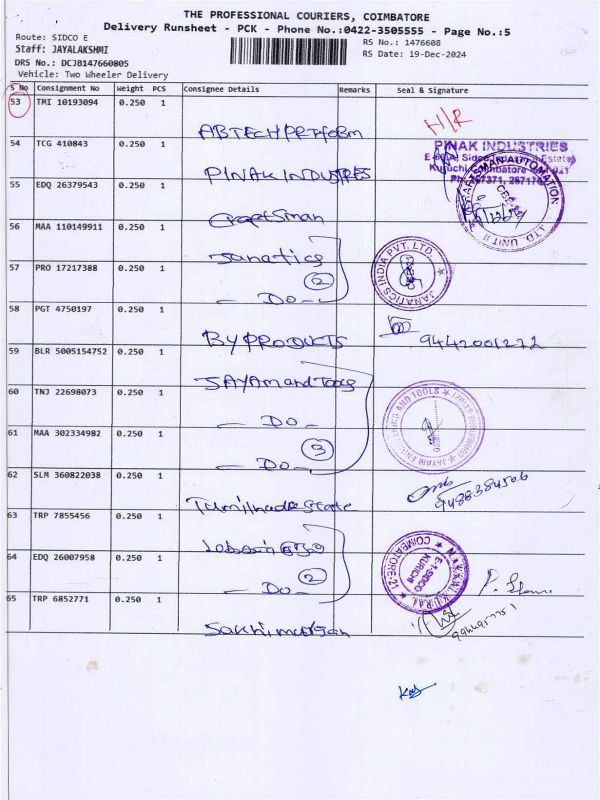 THE PROFESSIONAL COURIERS, COIMBATORE
Delivery Runsheet - PCK - Phone No.:0422-3505555 - Page No.:5
Route: SIDCO E
Staff: JAYALAKSHMI
DRS No.: DCJB147660805
Vehicle: Two Wheeler Delivery
RS No.: 1476608
RS Date: 19-Dec-2024
S No Consignment No Weight PCS Consignee Details Remarks Seal & Signature
53 TMI 10193094 0.250 1
ABTECH H/R
54 TCG 410843 0.250 1
PINAK INDUSTRIES
PINAK INDUSTRIES
55 EDQ 26379543 0.250 1
56 MAA 110149911 0.250 1
Janatics
JANATICS INDIA PVT. LTD.
57 PRO 17217388 0.250 1
2
- DO -
58 PGT 4750197 0.250 1
BY PRODUCTS 9442001272
59 BLR 5005154752 0.250 1
60 TNJ 22698073 0.250 1
- DO -
61 MAA 302334982 0.250 1
3
- DO -
62 SLM 360822038 0.250 1
Tamilnadu State
63 TRP 7855456 0.250 1
64 EDQ 26007958 0.250 1
2
- DO -
65 TRP 6852771 0.250 1
Sakthimurgan